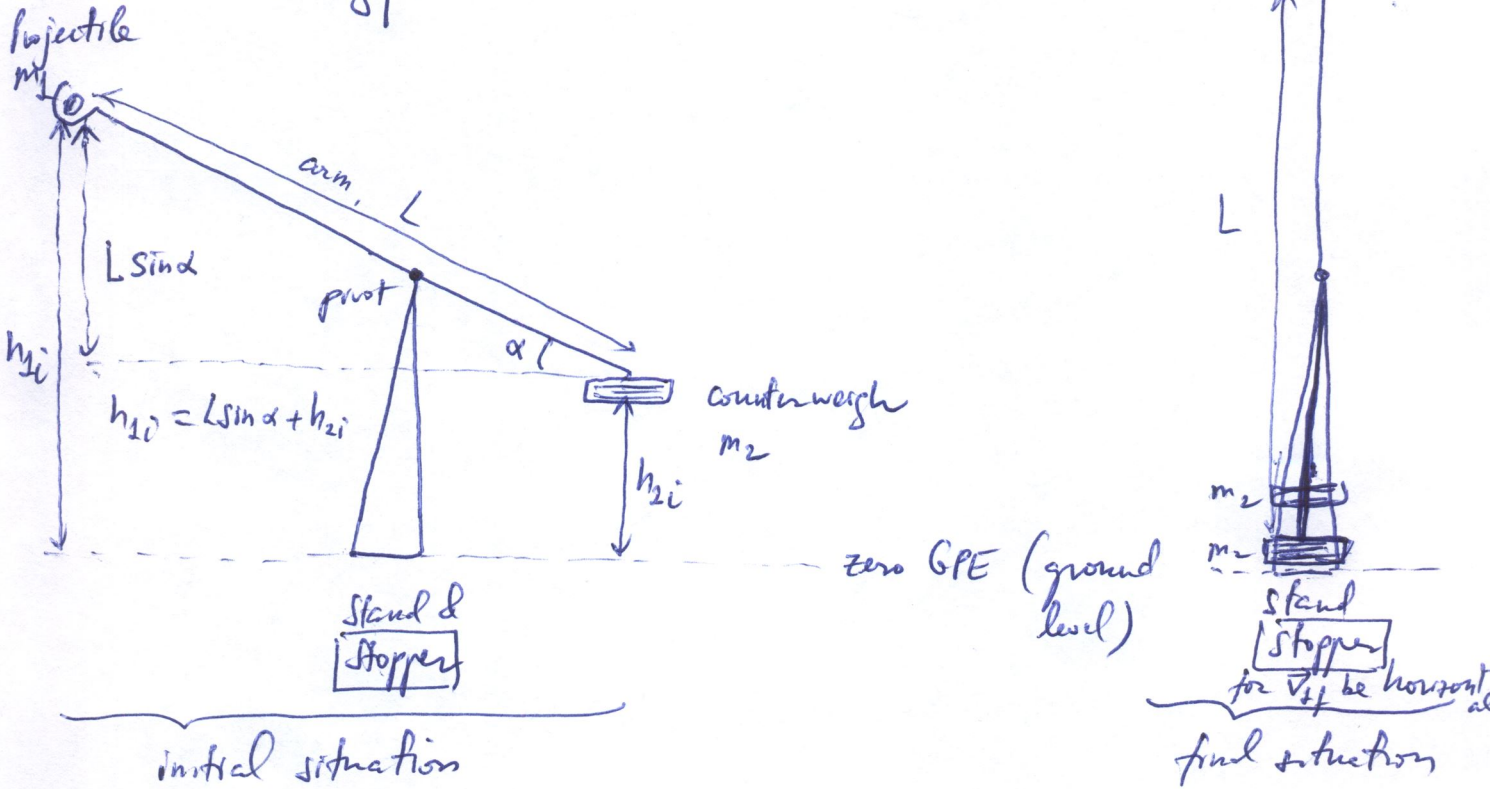 Projectile
m1
arm, L
L sinα
pivot
h1i
α
h1i = L sinα + h2i
counterweigh
m2
h2i
zero GPE (ground
level)
stand &
stopper
initial situation
L
m2
m2
stand
stopper
for v⃗1f be horizontal
final situation